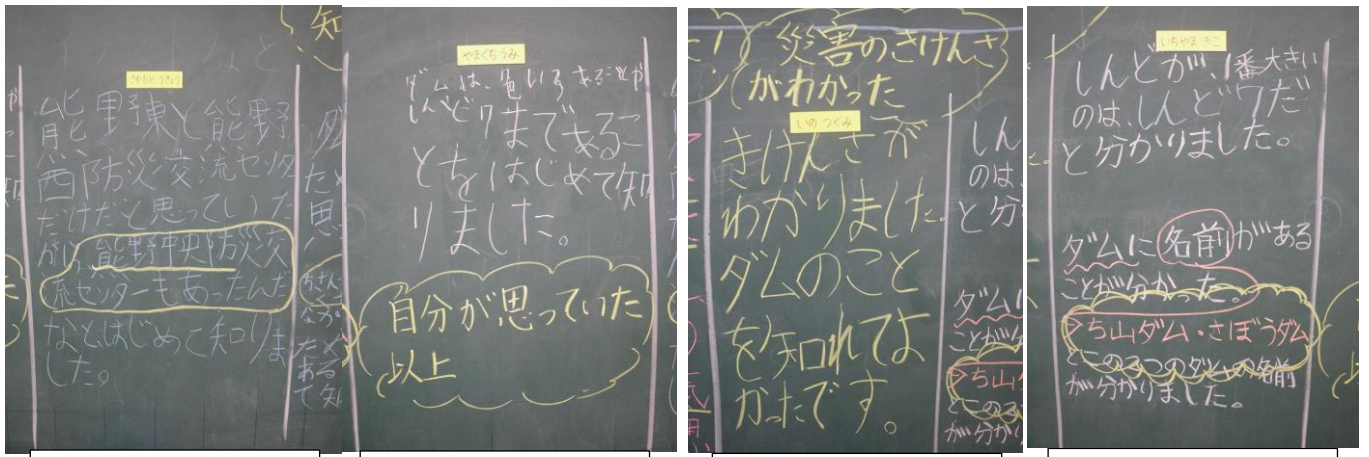 知
能野東と能野
酋防災交流センタ
だけだと思っていた
がい、能野中央防災交
流センターもあったんだ
なとはじめて知りま
した。
やまぐちうみ
ダムは、色いろあることや
しんど7まであるこ
とをはじめて知
りました。
自分が思っていた
以上
災害のきけんさ
がわかった
いのつぐみ
きけんさが
わかりました。
ダムのこと
を知れてよ
かったです。
しん
のは、
と分
ダムに
ことが分
>ち山
が分かり
いちやまきこ
しんどが、1番大きい
のは、しんど7だ
と分かりました。
ダムに名前がある
ことが分かった。
>ち山ダム・さぼうダム
とこの2つのダムの名前
が分かりました。